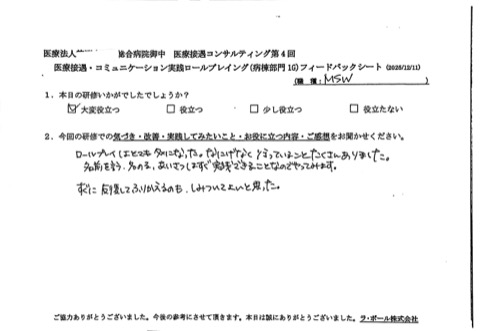 医療法人 総合病院御中 医療接遇コンサルティング第4回
医療接遇・コミュニケーション実践ロールプレイング(病棟部門1G)フィードバックシート(2025/12/11)
(職種:MSW)
1.本日の研修いかがでしたでしょうか?
☑大変役立つ □役立つ □少し役立つ □役立たない
2.今回の研修での気づき・改善・実践してみたいこと・お役に立つ内容・ご感想をお聞かせください。
ロールプレイはとてもタメになった。なにげなくやっていることたくさんありました。
名前を言う、名のる、あいさつはすぐ実践できることなのでやってみます。
次に 反復してふりかえるのも、しみついてよいと思った。
ご協力ありがとうございました。今後の参考にさせて頂きます。本日は誠にありがとうございました。ラ・ポール株式会社